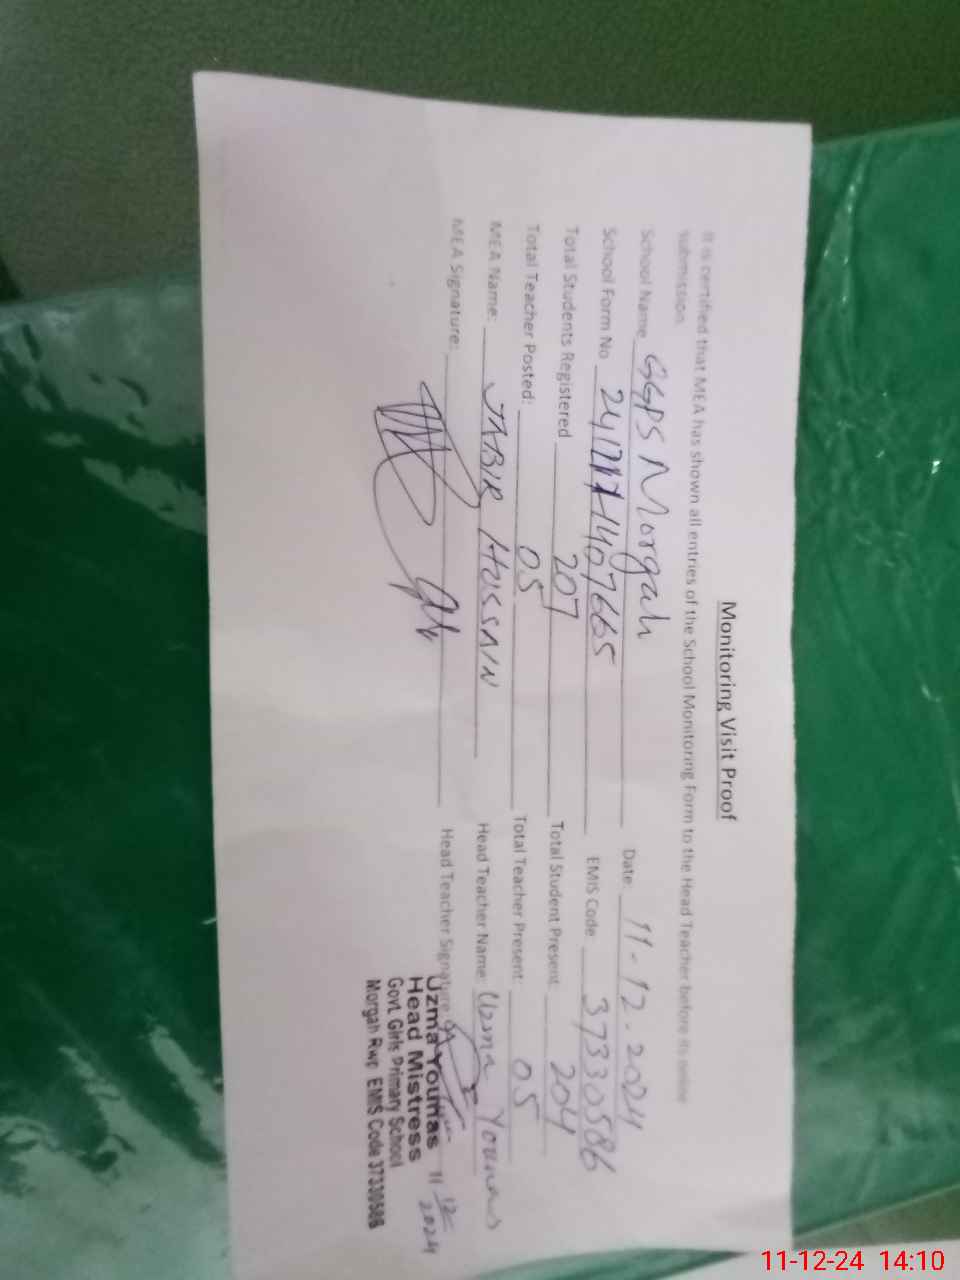 Monitoring Visit Proof
It is certified that MEA has shown all entries of the School Monitoring Form to the Head Teacher before its online
submission.
School Name GGPS Morgah Date: 11-12-2024
School Form No EMIS Code 37330586
Total Students Registered 207 Total Student Present 204
Total Teacher Posted: 05 Total Teacher Present: 05
MEA Name: JABIR HUSSAIN Head Teacher Name: Uzma Younas
MEA Signature: Head Teacher Signature
Uzma Younas
Head Mistress
Govt. Girls Primary School
Morgah Rwp EMIS Code 37330586
11/12/2024
11-12-24 14:10